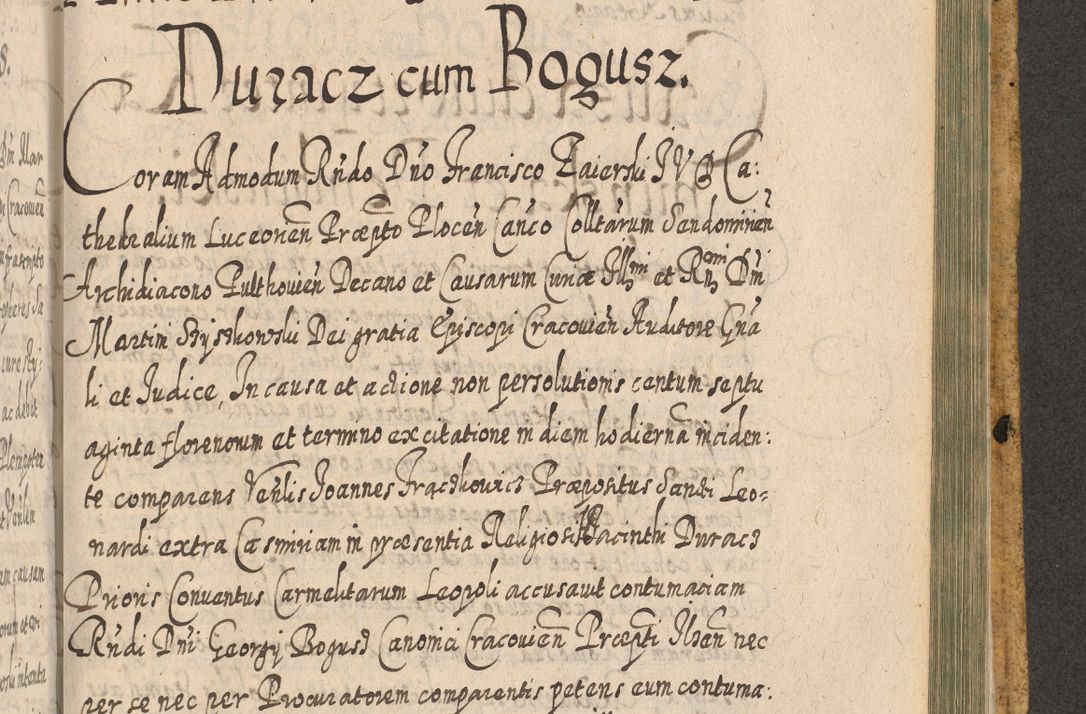 Duracz cum Bogusz.
Coram Admodum Rndo Dno Francisco Zaierski JVD Ca:
thedralium Luceonen Præpto Plocen Canco Colltarum Sendomirien
Archidiacono Pulthovien Decano et Causarum Curiæ Illmi et Rndmi Dni
Martini Szyszkowski Dei gratia Episcopi Cracovien Auditore Gna
li et Judice, In causa et actione non persolutionis centum septu
aginta florenorum et termino ex citatione in diem hodierna inciden:
te comparens Venlis Joannes Praepositus Sancti Leo=
nardi extra Casimiriam in præsentia Religiosi Hacinthi Duracz
Prioris Conventus Carmelitarum Leopoli accusavit contumaciam
Rndi Dni Georgy Bogusz Canonici Cracovien Præpti Ilzen nec
per se nec per Procuratorem comparentis petens eum contuma: